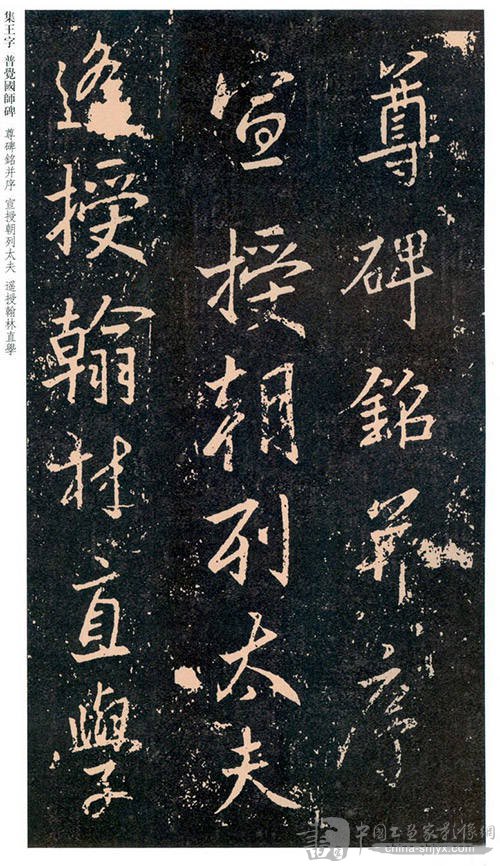 尊碑銘并序
宣授朝列太夫
遥授翰林直學
集王字 普覺國師碑 尊碑銘并序 宣授朝列太夫 遥授翰林直學
中国书画家影像网
china-shjyx.com